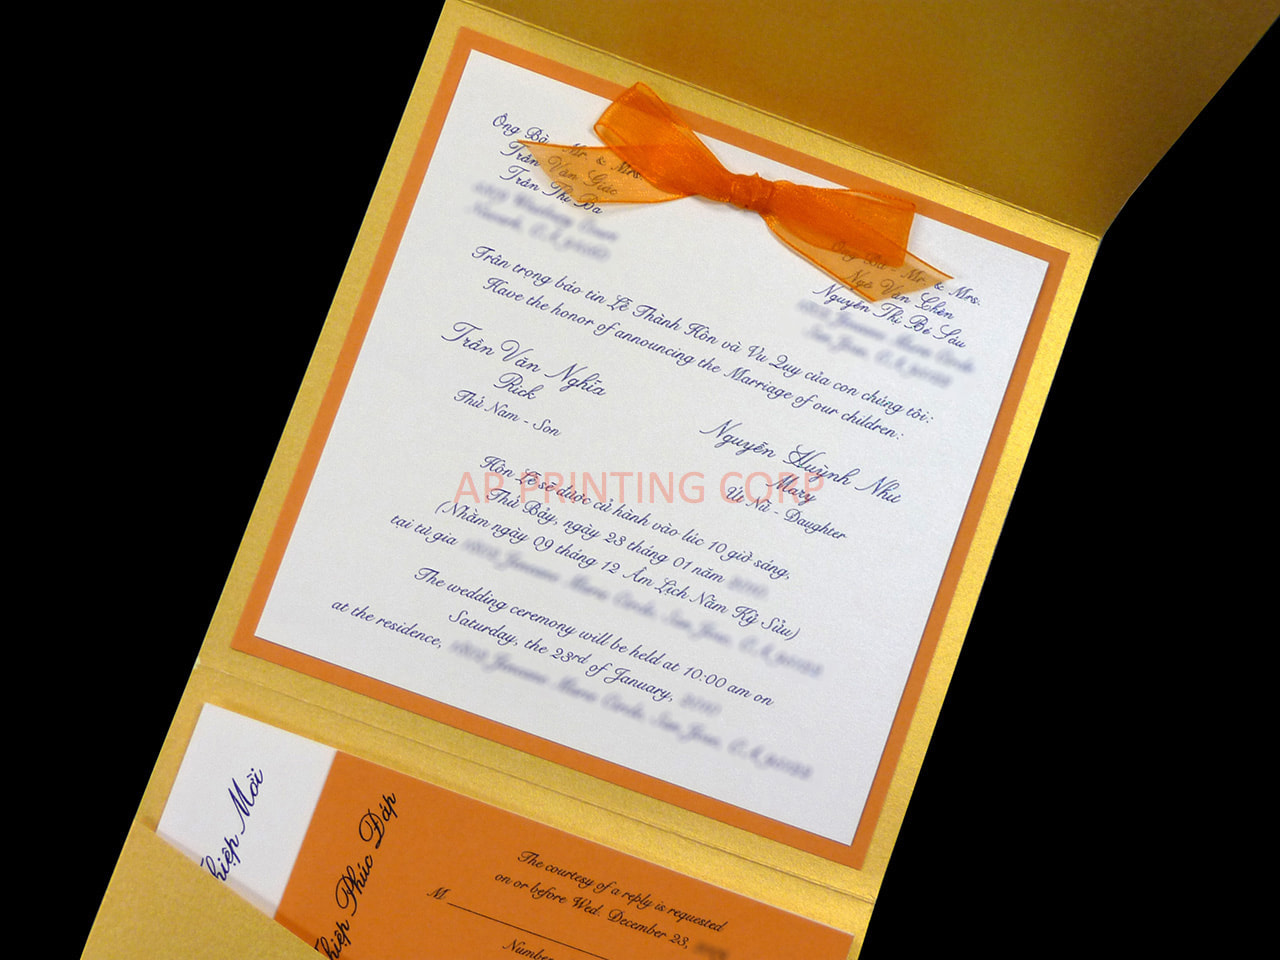 Ông Bà - Mr. & Mrs.
Trần Văn Giác
Trần Thị Ba
Ông Bà - Mr. & Mrs.
Ngô Văn Chén
Nguyễn Thị Bé Sáu
Trân trọng báo tin Lễ Thành Hôn và Vu Quy của con chúng tôi:
Have the honor of announcing the Marriage of our children:
Trần Văn Nghĩa
Rick
Thứ Nam - Son
Nguyễn Huỳnh Như
Mary
Út Nữ - Daughter
AP PRINTING CORP
Hôn Lễ sẽ được cử hành vào lúc 10 giờ sáng,
Thứ Bảy, ngày 23 tháng 01 năm
(Nhằm ngày 09 tháng 12 Âm Lịch Năm Kỷ Sửu)
tại tư gia
The wedding ceremony will be held at 10:00 am on
Saturday, the 23rd of January,
at the residence,
Thiệp Mời
Thiệp Phúc Đáp
The courtesy of a reply is requested
on or before Wed. December 23,
M
Number